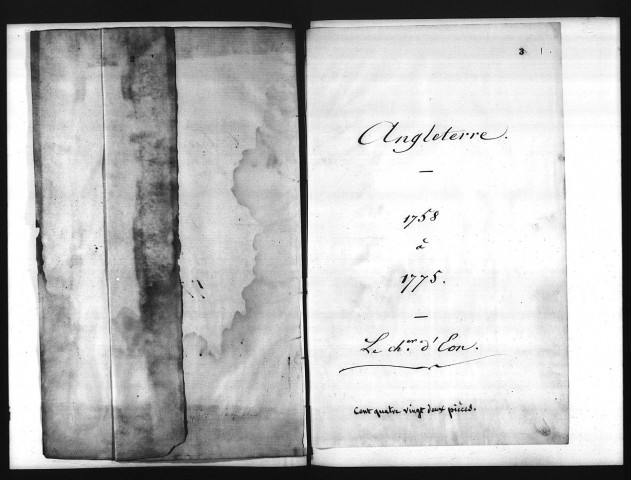 3
Angleterre.
—
1758
à
1775.
—
Le ch.er d'Eon.
Cent quatre vingt deux pièces.